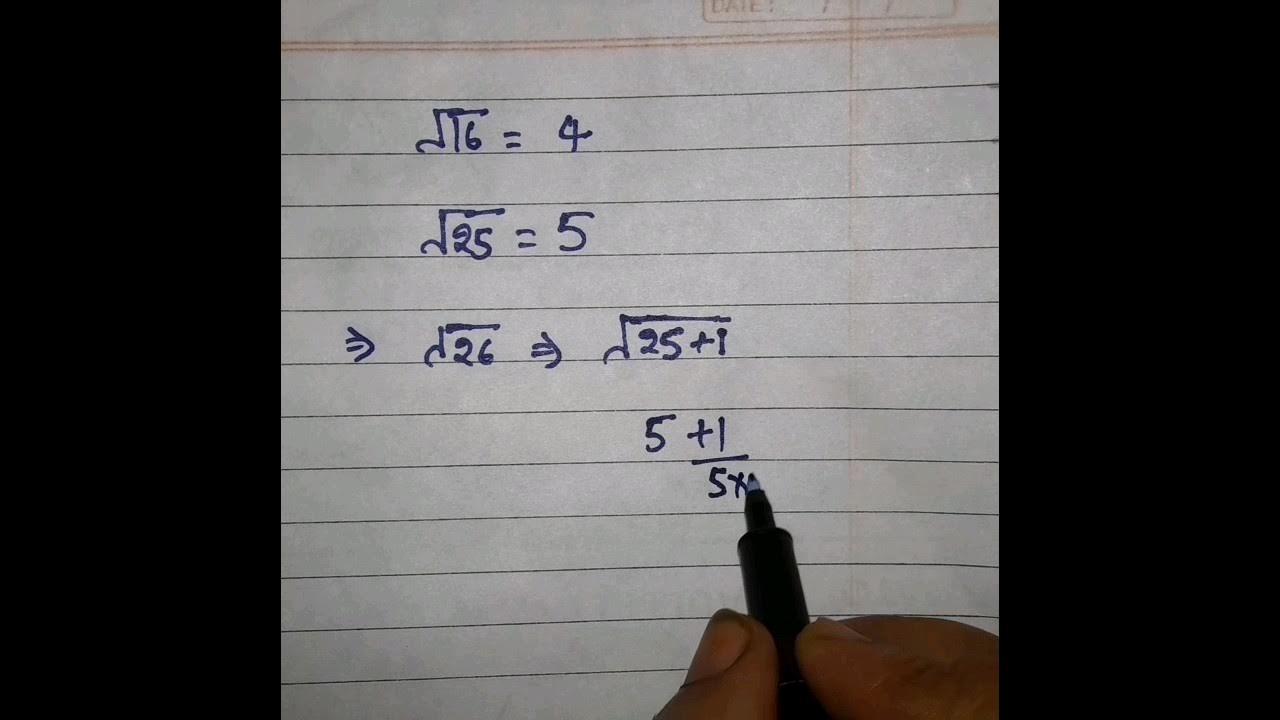 DATE: / /
√16 = 4
√25 = 5
⇒ √26 ⇒ √25+1
5 +1
5×